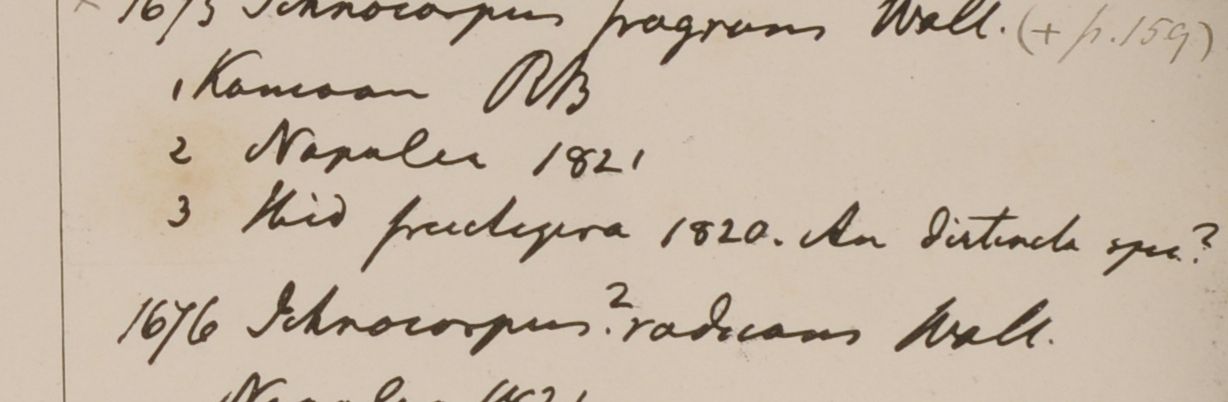 1675 Ichnocarpus fragrans Wall. (+ p. 159)
1 Kamaon RB
2 Napalia 1821
3 Ibid fructigera 1820. An distincta spec?
1676 Ichnocarpus? radicans Wall.
Napalia 1821